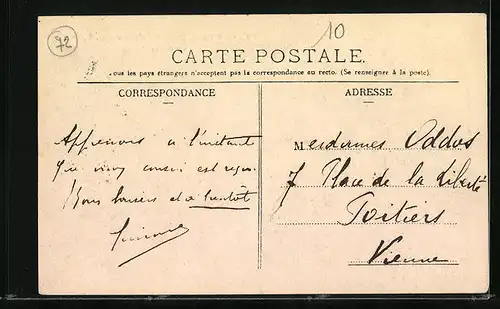 72
10
CARTE POSTALE.
ous les pays étrangers n'acceptent pas la correspondance au recto. (Se renseigner à la poste).
CORRESPONDANCE
ADRESSE
Apprenons a l'instant
que envoi est reçu.
Bons baisers et à bientôt
Mesdames Oddos
7 Place de la Liberté
Poitiers
Vienne